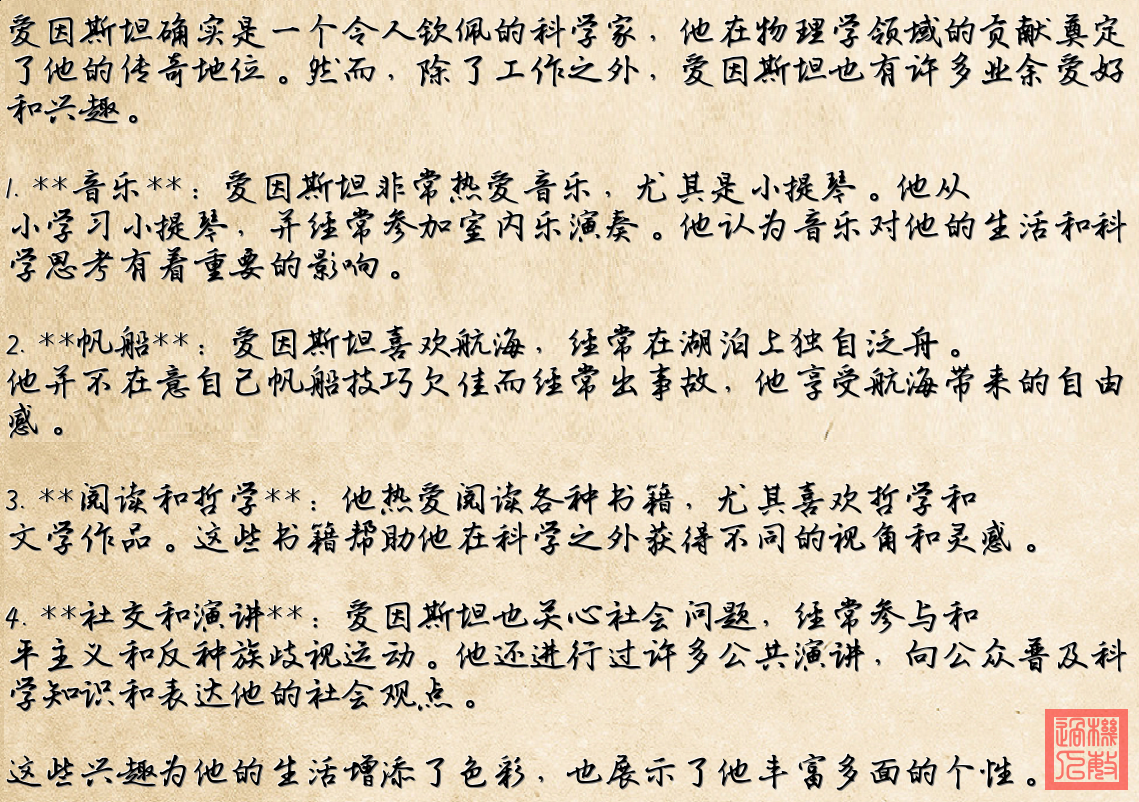 爱因斯坦确实是一个令人钦佩的科学家，他在物理学领域的贡献奠定
了他的传奇地位。然而，除了工作之外，爱因斯坦也有许多业余爱好
和兴趣。
1. **音乐**：爱因斯坦非常热爱音乐，尤其是小提琴。他从
小学习小提琴，并经常参加室内乐演奏。他认为音乐对他的生活和科
学思考有着重要的影响。
2. **帆船**：爱因斯坦喜欢航海，经常在湖泊上独自泛舟。
他并不在意自己帆船技巧欠佳而经常出事故，他享受航海带来的自由
感。
3. **阅读和哲学**：他热爱阅读各种书籍，尤其喜欢哲学和
文学作品。这些书籍帮助他在科学之外获得不同的视角和灵感。
4. **社交和演讲**：爱因斯坦也关心社会问题，经常参与和
平主义和反种族歧视运动。他还进行过许多公共演讲，向公众普及科
学知识和表达他的社会观点。
这些兴趣为他的生活增添了色彩，也展示了他丰富多面的个性。